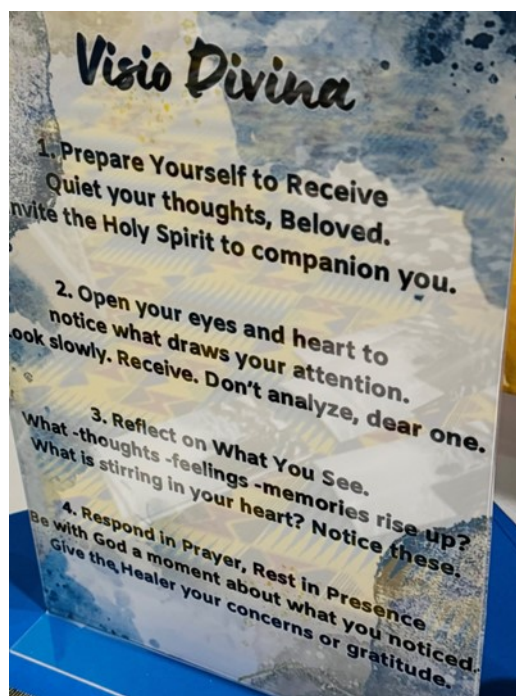 Visio Divina
1. Prepare Yourself to Receive
Quiet your thoughts, Beloved.
nvite the Holy Spirit to companion you.
2. Open your eyes and heart to
notice what draws your attention.
ook slowly. Receive. Don't analyze, dear one.
3. Reflect on What You See.
What -thoughts -feelings -memories rise up?
What is stirring in your heart? Notice these.
4. Respond in Prayer, Rest in Presence
Be with God a moment about what you noticed.
Give the Healer your concerns or gratitude.